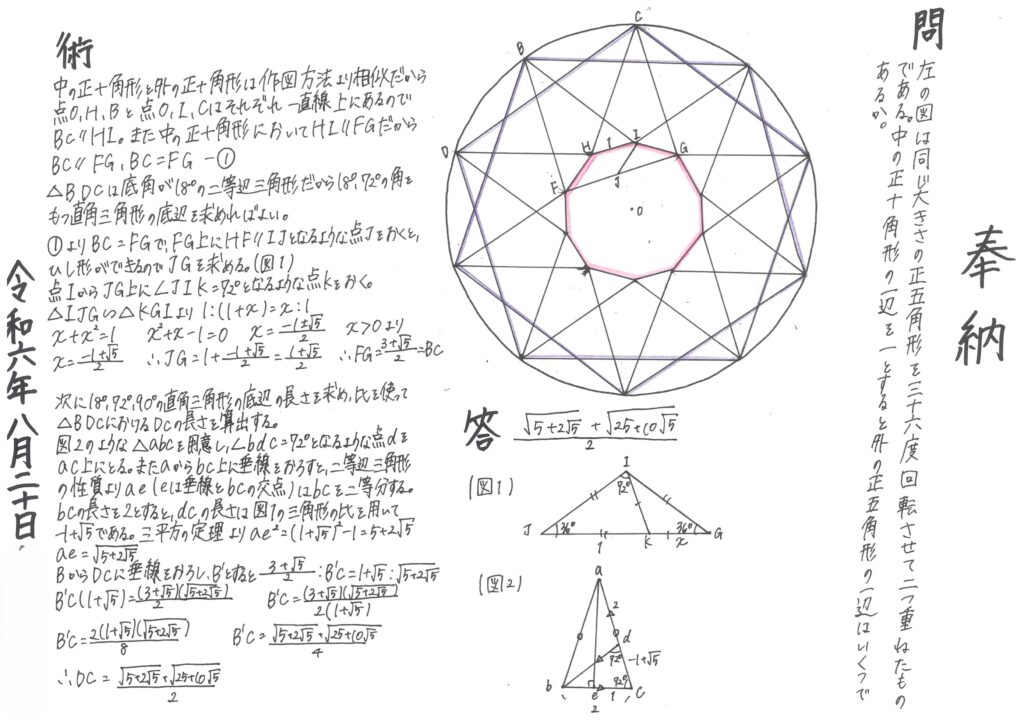 奉納
問
左の図は同じ大きさの正五角形を三十六度回転させて二つ重ねたもの
である。中の正十角形の一辺を一とすると外の正五角形の一辺はいくつで
あるか。
C
B
D
H
I
G
F
J
O
1
答 (√(5+2√5) + √(25+10√5))/2
(図1)
I
72°
J
36°
1
K
36°
x
G
(図2)
a
2
d
72°
-1+√5
b
e
1
72°
C
2
術
中の正十角形と外の正十角形は作図方法より相似だから
点O,H,Bと点O,I,Cはそれぞれ一直線上にあるので
BC∥HI。また中の正十角形においてHI∥FGだから
BC∥FG,BC=FG −①
△BDCは底角が18°の二等辺三角形だから18°,72°の角を
もつ直角三角形の底辺を求めればよい。
①よりBC=FGで,FG上にHF∥IJとなるような点Jをおくと,
ひし形ができるのでJGを求める。(図1)
点IからJG上に∠JIK=72°となるような点Kをおく。
△IJG∽△KGIより 1:(1+x)=x:1
x+x²=1 x²+x-1=0 x=(-1±√5)/2 x>0より
x=(-1+√5)/2 ∴JG=1+(-1+√5)/2=(1+√5)/2 ∴FG=(3+√5)/2=BC
次に18°,72°,90°の直角三角形の底辺の長さを求め,比を使って
△BDCにおけるDCの長さを算出する。
図2のような△abcを用意し,∠bdc=72°となるような点dを
ac上にとる。またaからbc上に垂線をおろすと,二等辺三角形
の性質よりae(eは垂線とbcの交点)はbcを二等分する。
bcの長さを2とすると,dcの長さは図1の三角形の比を用いて
-1+√5である。三平方の定理よりae²=(1+√5)²-1=5+2√5
ae=√(5+2√5)
BからDCに垂線をおろし,B'とすると (3+√5)/2:B'C=1+√5:√(5+2√5)
B'C(1+√5)=(3+√5)(√(5+2√5))/2 B'C=(3+√5)(√(5+2√5))/2(1+√5)
B'C=2(1+√5)(√(5+2√5))/8 B'C=(√(5+2√5)+√(25+10√5))/4
∴DC=(√(5+2√5)+√(25+10√5))/2
令和六年八月二十日